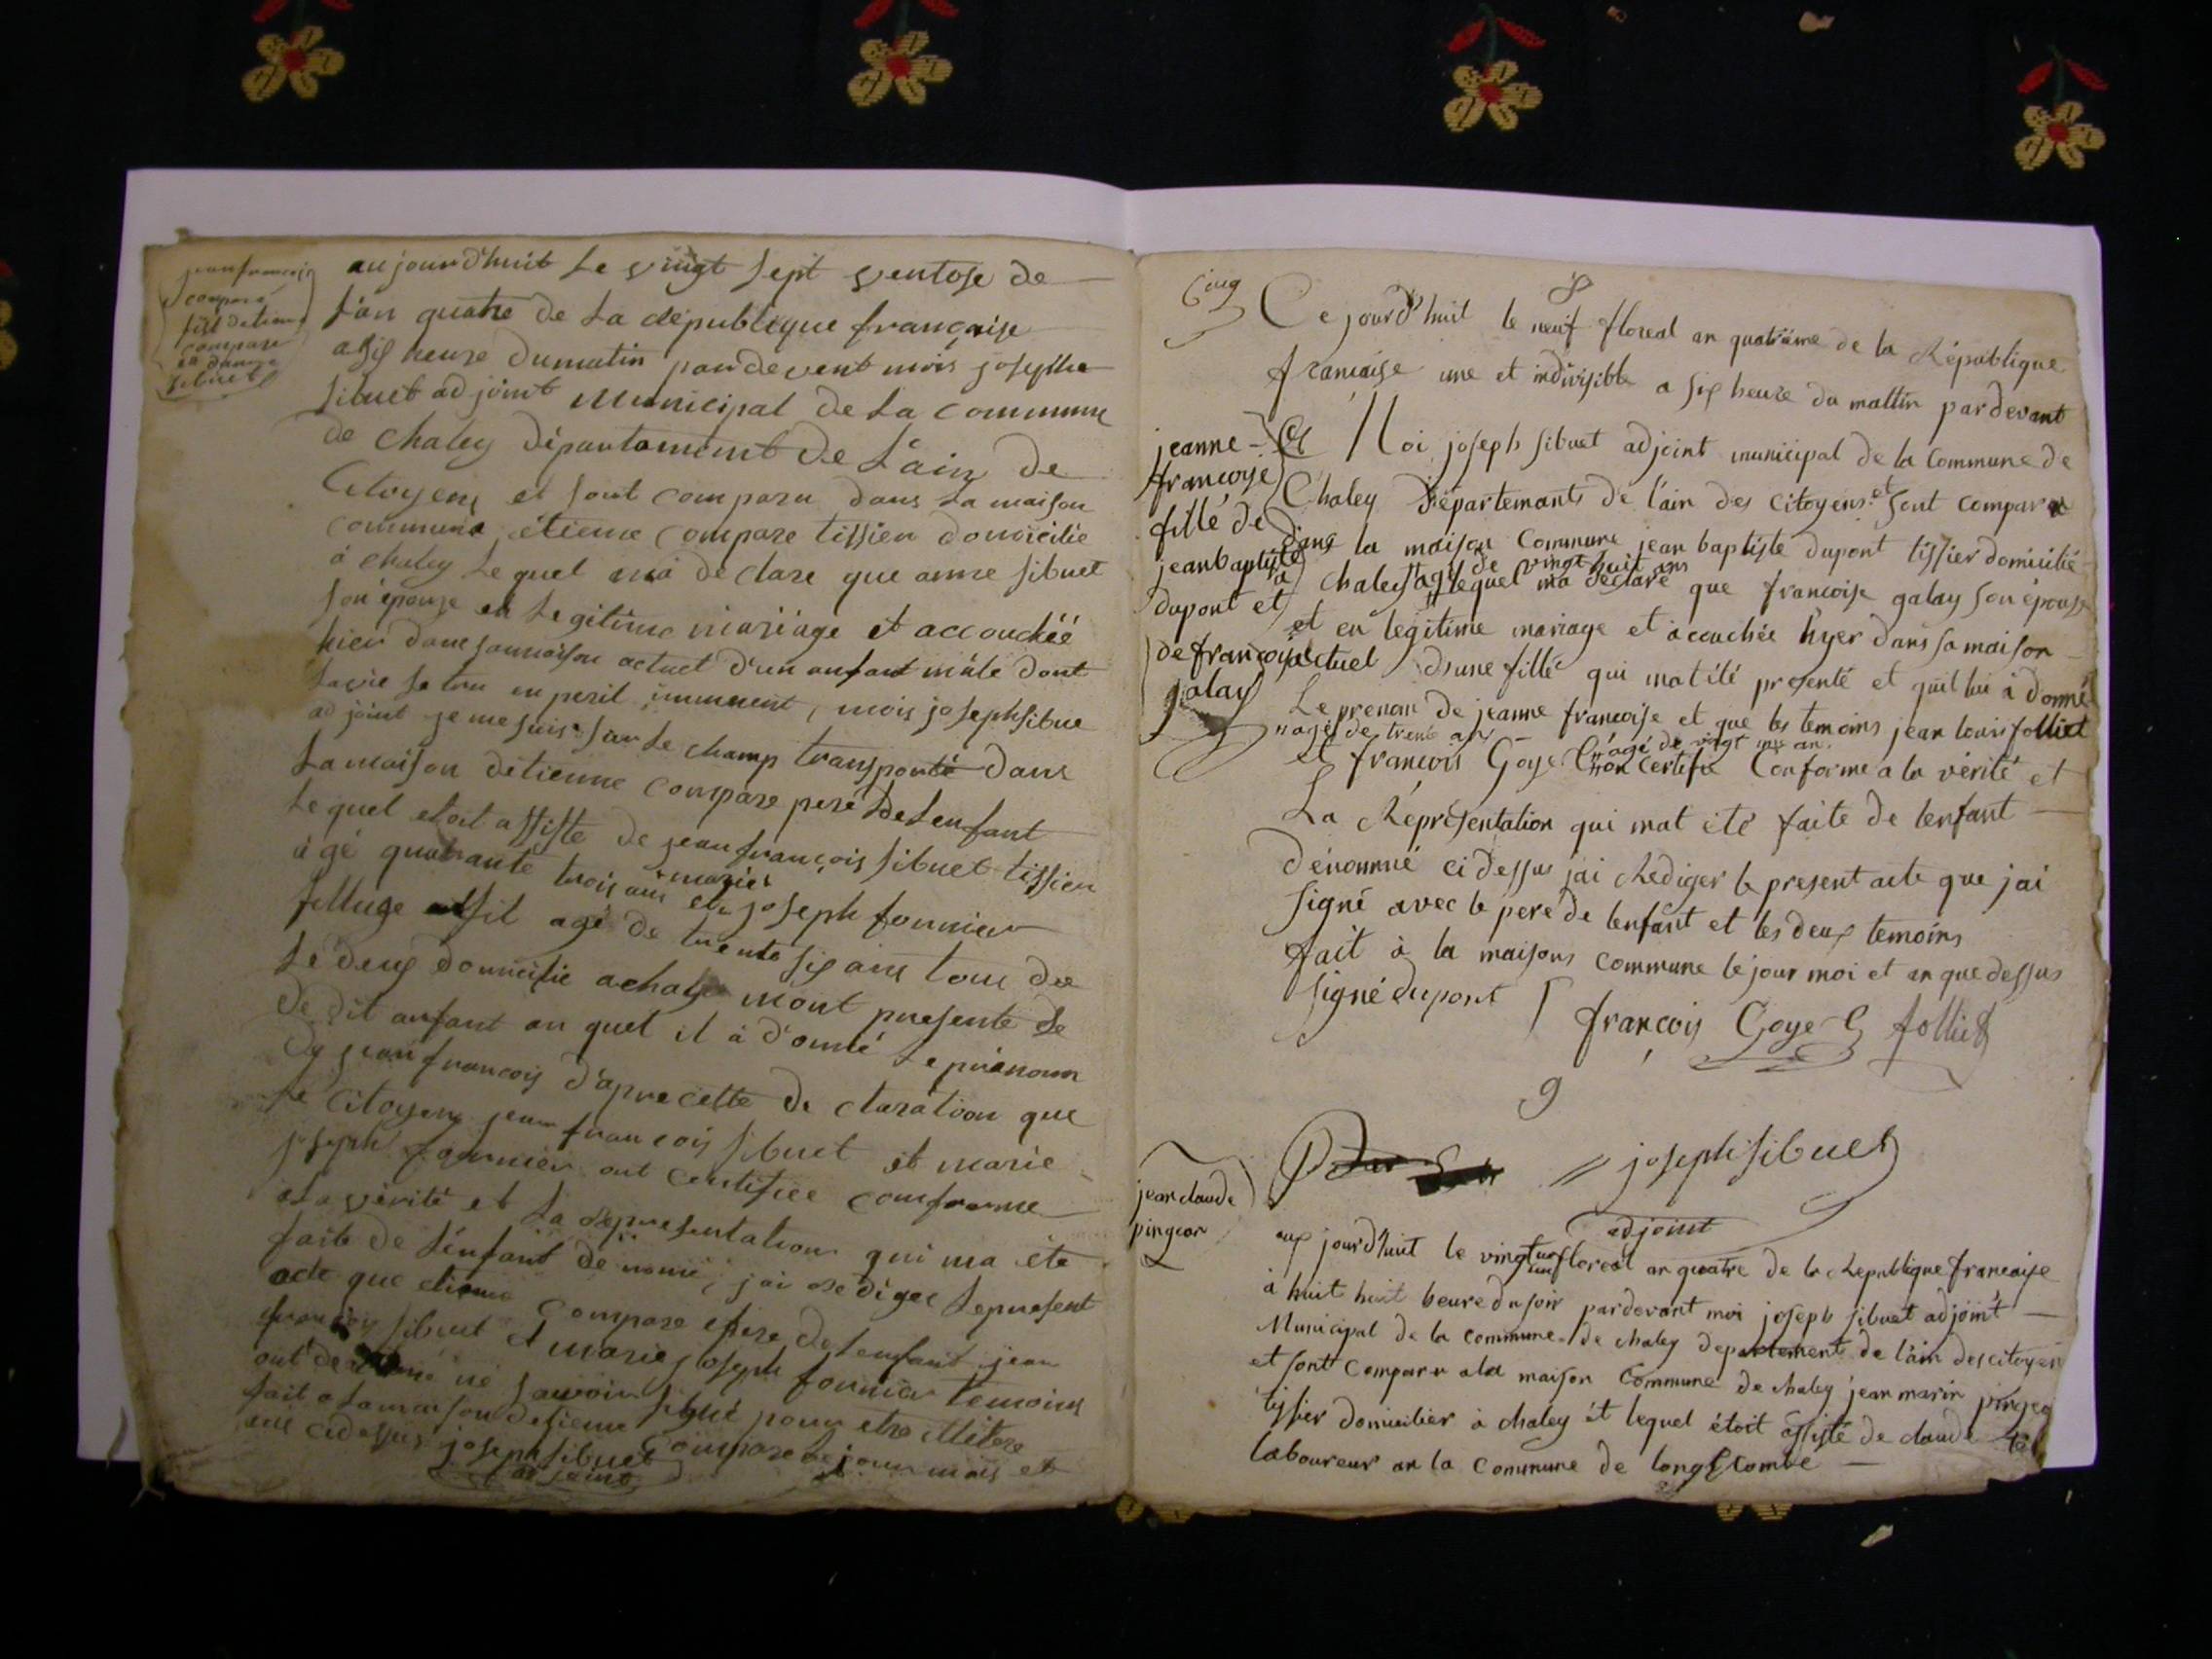 jean françois
compare
fils detienne
compare
et danne
sibuet
aujourd'huit Le vingt sept ventose de
L'an quatre de La république française
a six heure dumatin pardevent mois josephe
sibuet adjoint Municipal de La commune
de chaley département de L'ain de
Citoyens et sont comparu dans La maison
commune étienne compare tissier domicilié
à chaley Lequel ma declare que anne sibuet
son épouze en Legitime mariage et accouchéé
hier dans sa maison actuel d'un anfant mâle dont
La vie se trou en peril imminent, mois joseph sibue
adjoint je me suis sur Le champ transporté dans
La maison détienne compare pere de Lenfant
Lequel etoit assisté de jean françois sibuet tissier
âgé quarante trois ans et marie joseph fournier
agé de trente six ans tous de
Le deux domicilie a chaley mont presenté Le
dedit anfant au quel il à donné Le prénom
de jean francois d'apre cette declaration que
Le Citoyens jean francois sibuet et marie
joseph fournier ont certifiee comforme
a La vérité et La representation qui ma été
faite de Lénfant denomé, j'ai rediger Le present
acte que etienne compare pere de Lenfant jean
françois sibuet et marie joseph fournier temoins
ont declaré né savoir signé pour etre illitere
fait a La maison detienne compare Le jour mois et
ane cidessus joseph sibuet
adjoint
Cinq
8
Ce jourd'huit le neuf floreal an quatriéme de la République
francaise une et indivisible a six heure du mattin pardevant
Moi joseph sibuet adjoint municipal de la Commune de
Chaley Departemants de l'ain des Citoyens et sont comparu
dans la maison Commune jean baptiste dupont tissier domicilié
à chaley agé de vingt huit ans lequel ma déclaré que francoise galay son épouse
et en legitime mariage et accouchée hyer dans sa maison
actuel d'une fille qui mat été presenté et quil lui à donné
Le prenom de jeanne françoise et que les temoins jean louis folliet
agé de trente ans
et francois Goyet agé de vingt ans on certifie Conforme a la vérité et
La Réprésentation qui mat été faite de lenfant
dénommé ci dessus j'ai Rediger le present acte que j'ai
signé avec le pere de lenfant et les deux temoins
fait à la maisons commune le jour moi et an que dessus
signé dupont françois Goyet folliet
jeanne
francoise
fille de
jean baptiste
dupont et
de francoise
galay
9
joseph sibuet
adjoint
jean claude
pingeon
aux jourd'huit le vingt un floreal an quatre de la Republique francaise
à huit huit heure du soir pardevant moi joseph sibuet adjoint
Municipal de la commune de chaley departement de l'ain des citoyen
et sont comparu a la maison Commune de chaley jean marin pingeo
tissier domicilier à chaley ét lequel étoit assisté de claude
laboureur an la Commune de longecombe